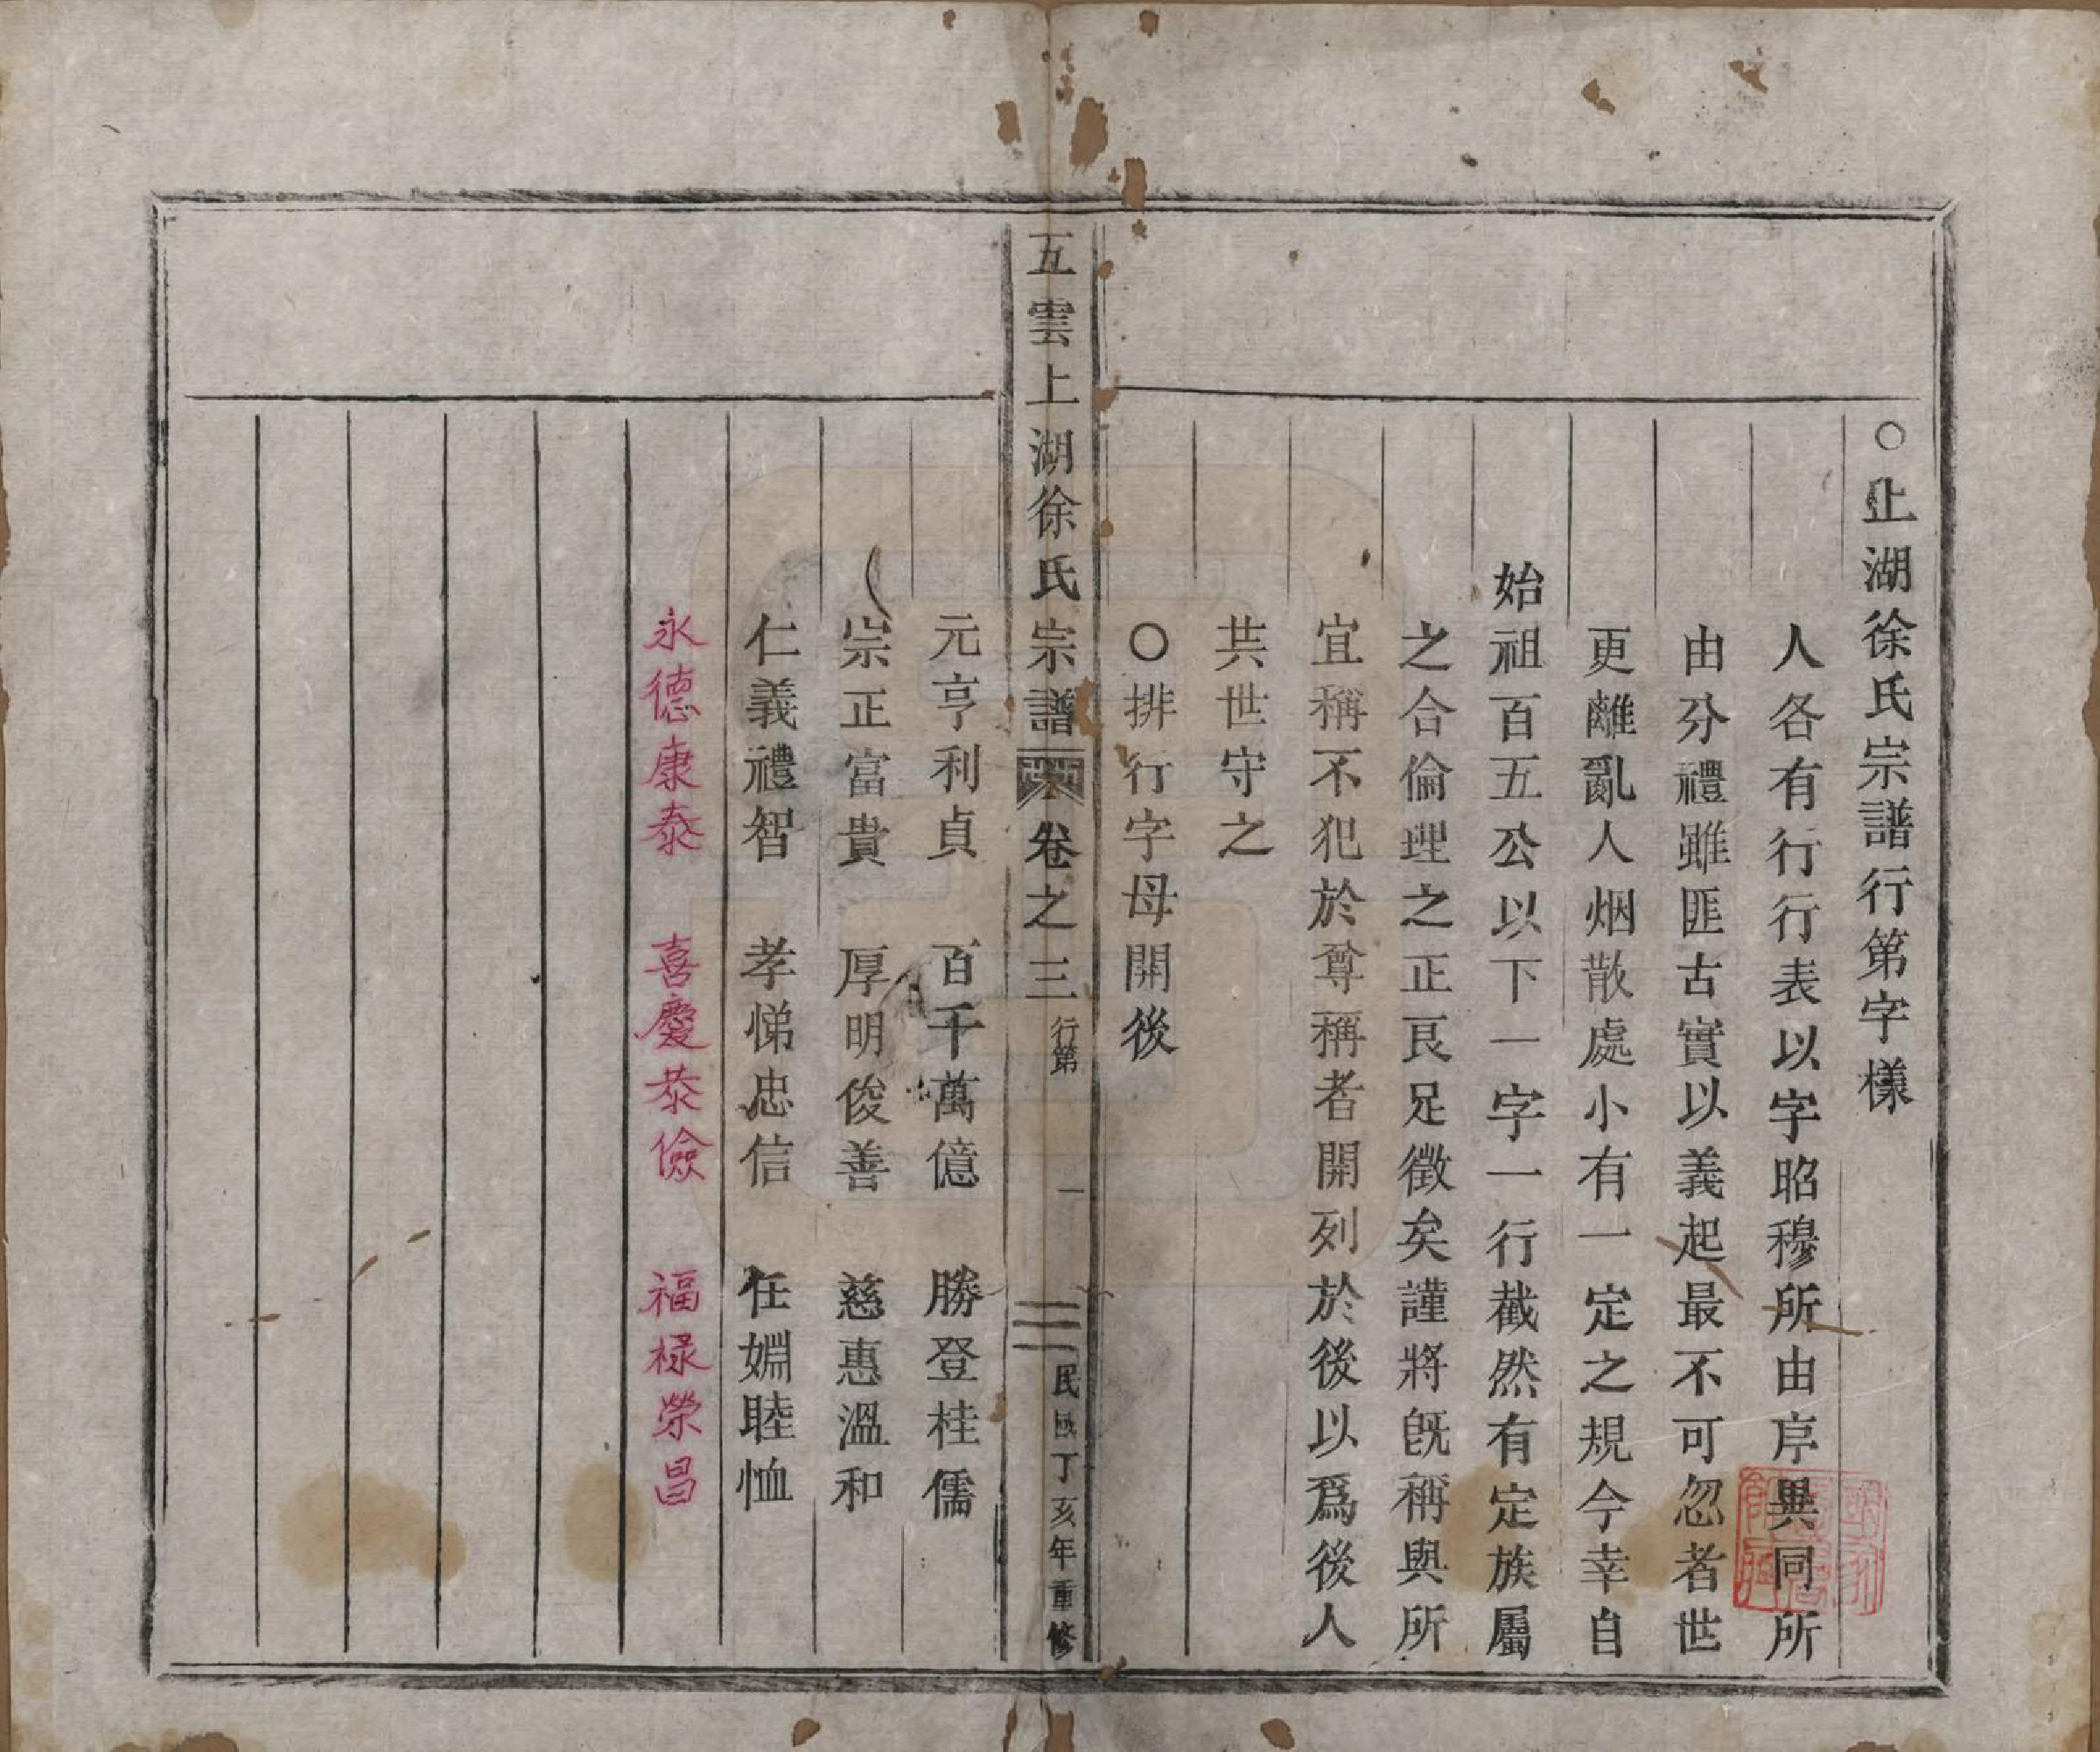 ○上湖徐氏宗譜行第字様
人各有行行表以字昭穆所由序異同所
由分禮雖匪古實以義起最不可忽者世
更離亂人烟散處小有一定之規今幸自
始祖百五公以下一字一行截然有定族屬
之合倫理之正良足徵矣謹將旣稱與所
宜稱不犯於尊稱者開列於後以爲後人
共世守之
○排行字母開後
五雲上湖徐氏宗譜 卷之三 行第 一 民國丁亥年重修
元亨利貞 百千萬億 勝登桂儒
崇正富貴 厚明俊善 慈惠溫和
仁義禮智 孝悌忠信 任婣睦恤
永德康泰 喜慶恭儉 福祿榮昌